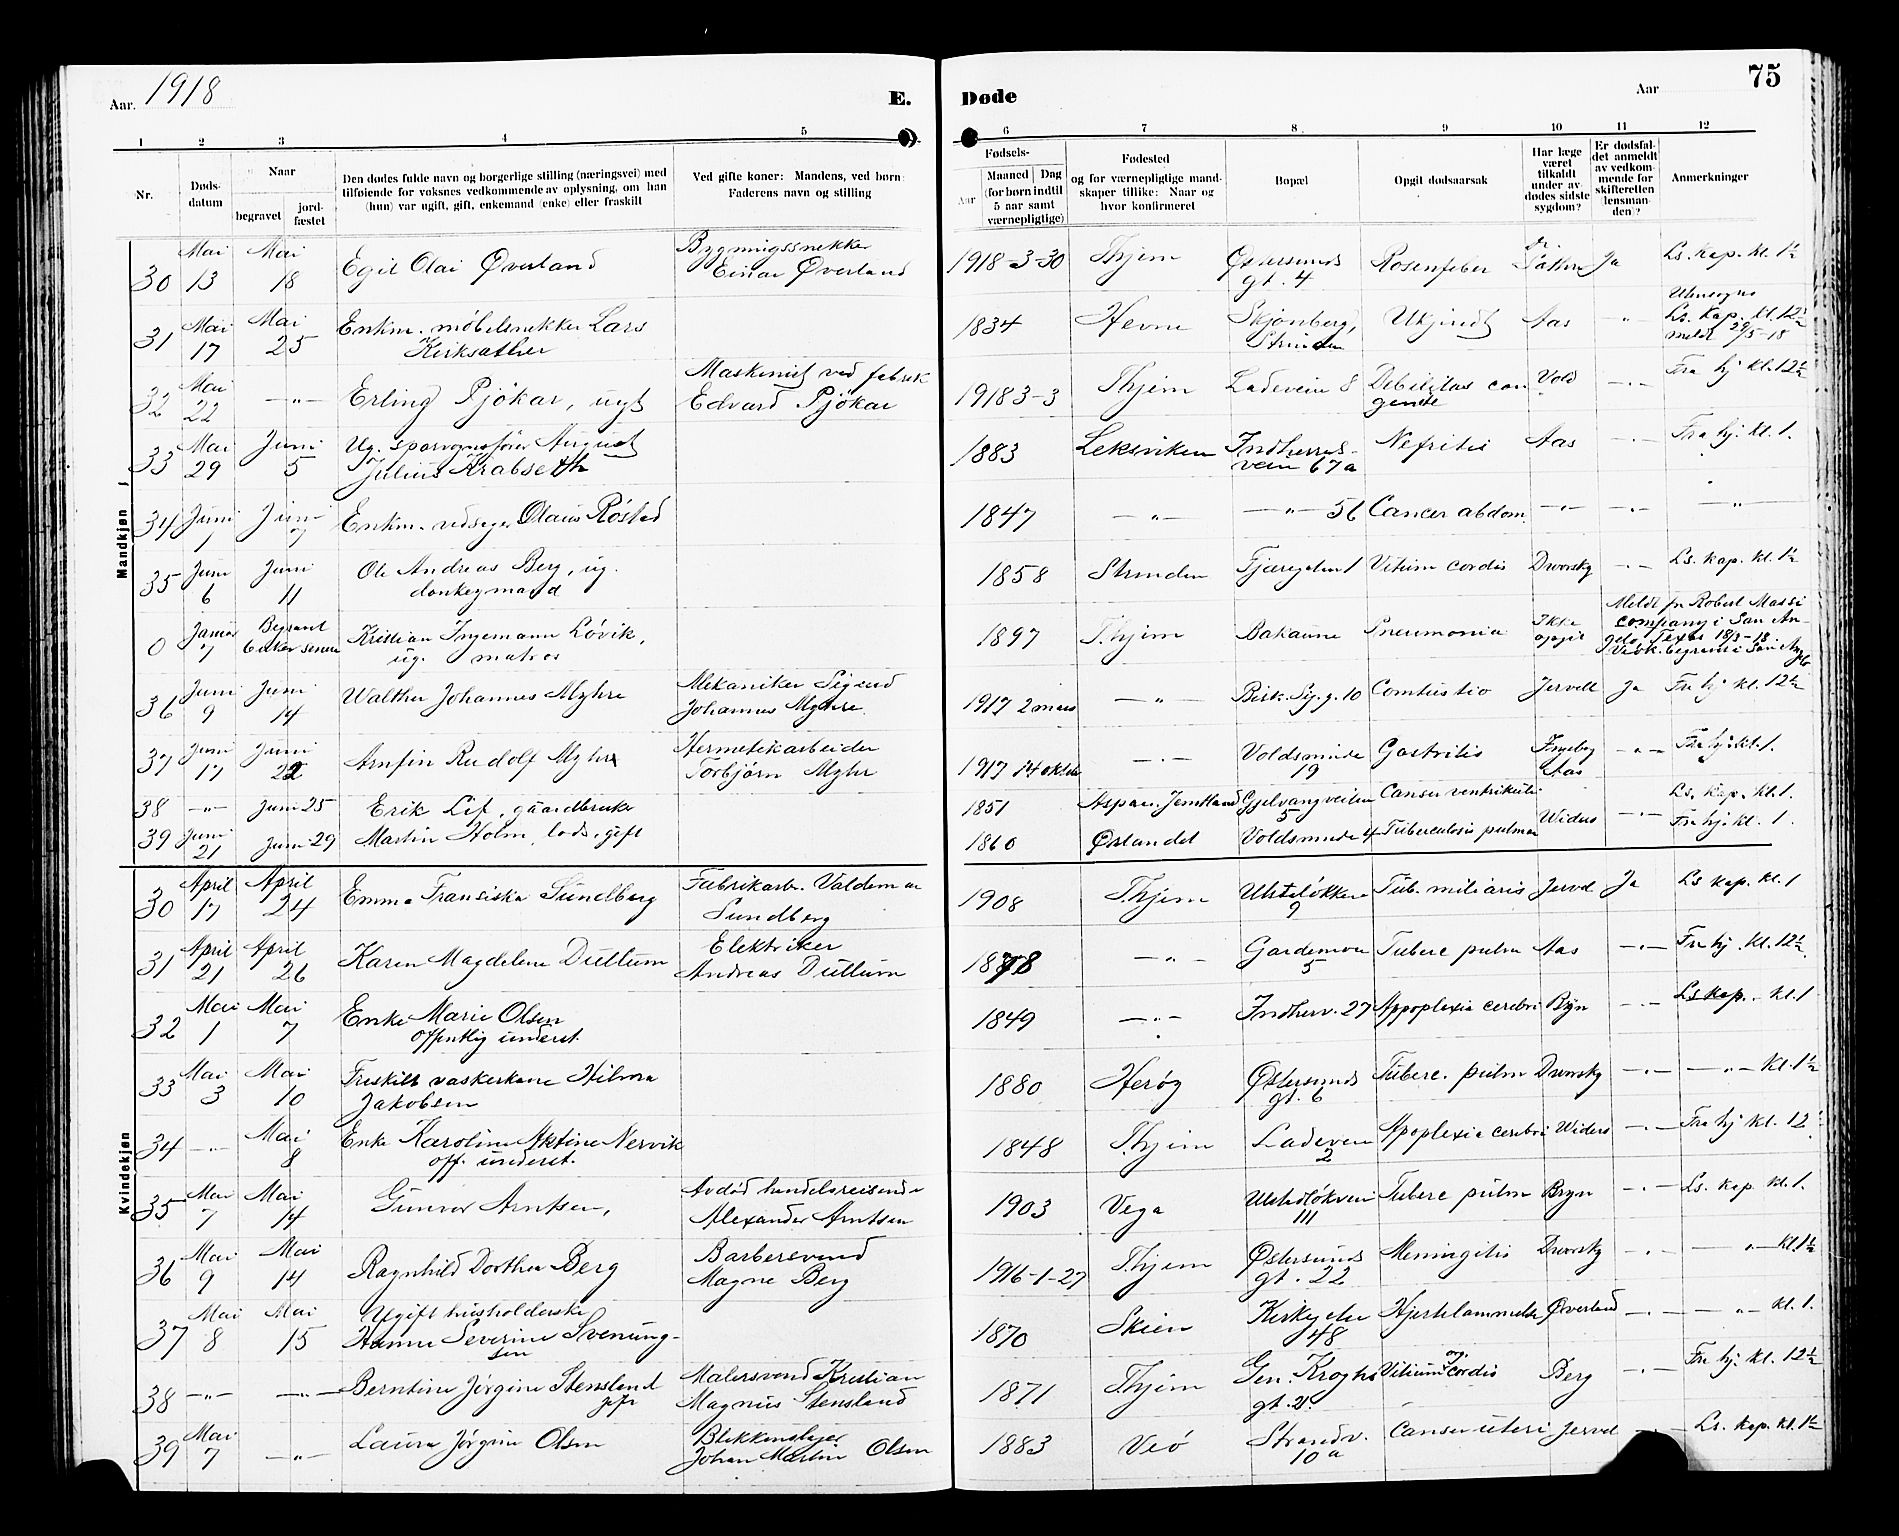 Aar. 1918
E.
Døde
Aar
75
1 2 3 4 5 6 7 8 9 10 11 12
Nr.
Døds-
datum
Naar
begravet
jord-
fæstet
Den dødes fulde navn og borgerlige stilling (næringsvei) med
tilføiende for voksnes vedkommende av oplysning, om han
(hun) var ugift, gift, enkemand (enke) eller fraskilt
Ved gifte koner: Mandens, ved børn:
Faderens navn og stilling
Fødsels-
Aar
Maaned Dag
(for børn indtil
5 aar samt
værnepligtige)
Fødested
og for værnepligtige mand-
skaper tillike: Naar og
hvor konfirmeret
Bopæl
Opgit dødsaarsak
Har læge
været
tilkaldt
under av-
dødes sidste
sygdom?
Er dødsfal-
det anmeldt
av vedkom-
mende for
skifteretten
(lensman-
den)?
Anmerkninger
Mandkjøn
30 Mai 13 Mai 18 Egil Olai Øverland Bygningssnekker Einar Øverland 1918-3-30 Thjem Østersunds gt. 4 Rosenfeber dr. Ja Ls. kap. kl. 1½
31 Mai 17 Mai 25 Enkm. møbelsnekker Lars Kirksæther 1834 Hevne Skjønberg, Strinden Ukjendt Aas -"- Utensogns Ls. kap. kl. 12½ meldt 29/5-18
32 Mai 22 -"- Erling Pjökar, ugt Maskinist ved fabrik Edvard Pjökar 1918 3-3 Thjem Ladevein 8 Debilitas con genita Vold -"- Fra hj kl. 12½
33 Mai 29 Juni 5 Ug. sporvognsfører August Julius Krabseth 1883 Leksviken Indherreds- vein 67a Nefritis Aas -"- Fra hj. kl. 1.
34 Juni 1 Juni 7 Enkm. vedsager Olaus Röstad 1847 -"- -"- 56 Cancer abdom. -"- -"- -"-
35 Juni 6 Juni 11 Ole Andreas Berg, ug. donkeymand 1858 Strinden Fjæregaten 1 Vitium cordis Dworsky -"- Ls. kap. kl. 1½
0 Januar 7 Begravet Kristian Ingemann Lövik, ug. matros 1897 T.hjem Bakaune Pneumonia Ikke opgit Meldt fr Robert Massi company i San An- gelo, Texas 18/3-18.
36 Juni 9 Juni 14 Walther Johannes Myhre Mekaniker Sigurd Johannes Myhre. 1917 2 mars -"- Bisk. Sig. g. 10 Combustio Jervell Ja Fra hj kl. 12½
37 Juni 17 Juni 22 Arnfin Rudolf Myhre Hermetikarbeider Torbjörn Myhr 1917 14 oktob -"- Voldsminde 19 Gastritis Ingeborg Aas -"- Fra hj. kl. 1.
38 -"- Juni 25 Erik Lif, gaardbruker 1851 Aspaas. Jemtland Gjelvangveiten 5 Canser ventrikuli Ls. kap. kl. 1.
39 Juni 21 Juni 29 Martin Holm, lods, gift 1860 Ørlandet Voldsminde 4 Tuberculosis pulmon Widerö -"- Fra hj. kl. 1.
Kvindekjøn
30 April 17 April 24 Emma Fransiska Sundberg Fabrikarb. Valdemar Sundberg 1908 T.hjem Ulstadløkken 9 Tub. miliaris Jervel Ja Ls kap. kl. 1
31 April 21 April 26 Karen Magdelene Dullum Elektriker Andreas Dullum 1878 -"- Gardemoen 5 Tuberc pulm Aas -"- Fra hj. kl. 12½
32 Mai 1 Mai 7 Enke Marie Olsen offentlig underst. 1849 -"- Indherv. 27 Appoplexia cerebri Bryn -"- Ls kap. kl. 1
33 Mai 3 Mai 10 Friskilt vaskerkone Hilma Jakobsen 1880 Herøy Østersunds gt. 6 Tuberc. pulm Dworsky -"- -"- kl. 1½
34 -"- Mai 8 Enke Karoline Nervik off. underst. 1848 T.hjem Ladevein 2 Apoplexia cerebri Widerö -"- Fra hj kl. 12½
35 Mai 7 Mai 14 Gunvor Arntsen, Avdöd handelsreisende Alexander Arntsen 1903 Vega Ulstadløkvein 111 Tuberc pulm Bryn -"- Ls. kap kl. 1.
36 Mai 9 Mai 14 Ragnhild Dorthea Berg Barbersvend Magne Berg 1916-1-27 Thjem Østersunds gt. 22 Meningitis Dworsky -"- -"- kl. 1½
37 Mai 8 Mai 15 Ugift husholderske Hanna Severine Svenung- sen 1870 Skien Kirkegaten 48 Hjertelammelse Øverland -"- -"- kl. 1.
38 -"- -"- Berntine Jörgine Stensland gift Malersvend Kristian Magnus Stensland 1871 Thjem Gen. Kroghs gt. 2. Vitium org. cordis Berg -"- Fra hj. kl. 12½
39 Mai 7 -"- Laura Jörgine Olsen Blikkenslager Johan Martin Olsen 1883 Veö Strandv. 10 a Canser uteri Jervel -"- Ls. kap. kl. 1½